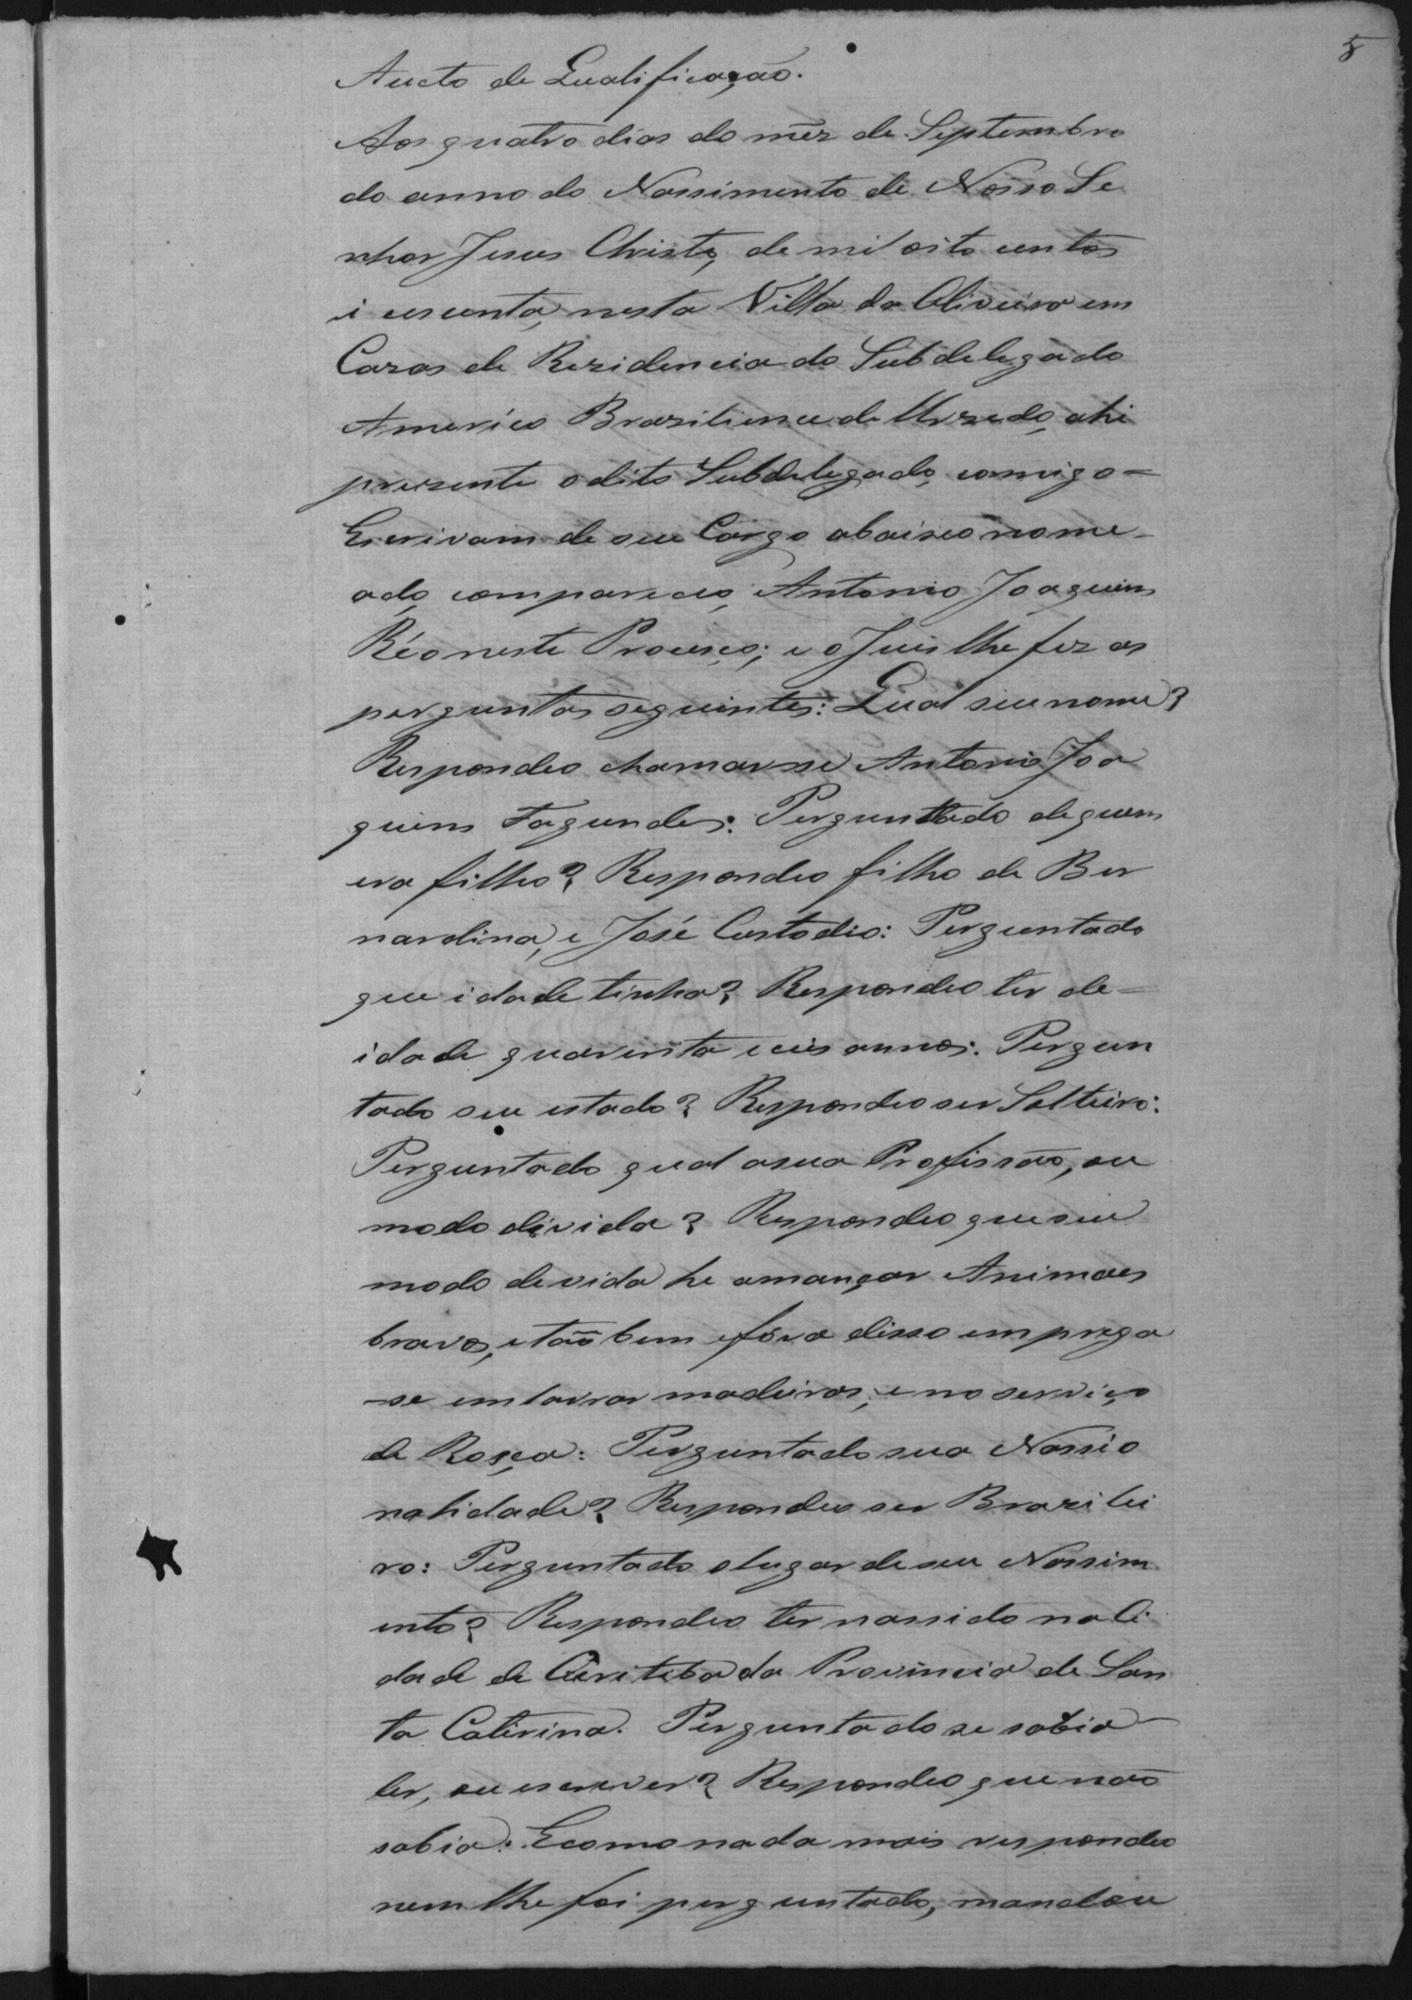 5
Aucto de Qualificação.
Aos quatro dias do mêz de Septembro
do anno do Nassimento de Nosso Se
nhor Jesus Christo, de mil oito centos
i cecenta, nesta Villa da Oliveira em
Cazas de Rezidencia do Subdelegado
Americo Braziliense de Urzedo, ahi
prezente o dito Subdelegado, comigo =
Escrivam de seu Cargo abaixo nome-
ado, compareceo, Antonio Joaquim
Réo neste Procęço; e o Juis lhe fez as
perguntas seguintes: Qual seu nome?
Respondeo chamar-se Antonio Joa
quim Fagundes: Perguntado de quem
era filho? Respondeo filho de Ber
nardina, e José Custodio: Perguntado
que idade tinha? Respondeo ter de =
idade quarenta e ceis annos: Pergun
tado seu estado? Respondeo ser Solteiro:
Perguntado qual a sua Profissão, ou
modo di vida? Respondeo que seu
modo de vida he amançar Animaes
bravos, e tão bem e fóra disso emprega
-se em lavrar madeiras, e no serviço
de Rosça: Perguntado sua Nassio
nalidade? Respondeo ser Brazilei
ro: Perguntado o lugar de seu Nassim
ento? Respondeo ter nassido na Ci
dade de Curiteba da Provincia de San
ta Caterina. Perguntado se sabia
ler, ou escrever? Respondeo que não
sabia: E como nada mais respondeo
nem lhe foi perguntado, mandou